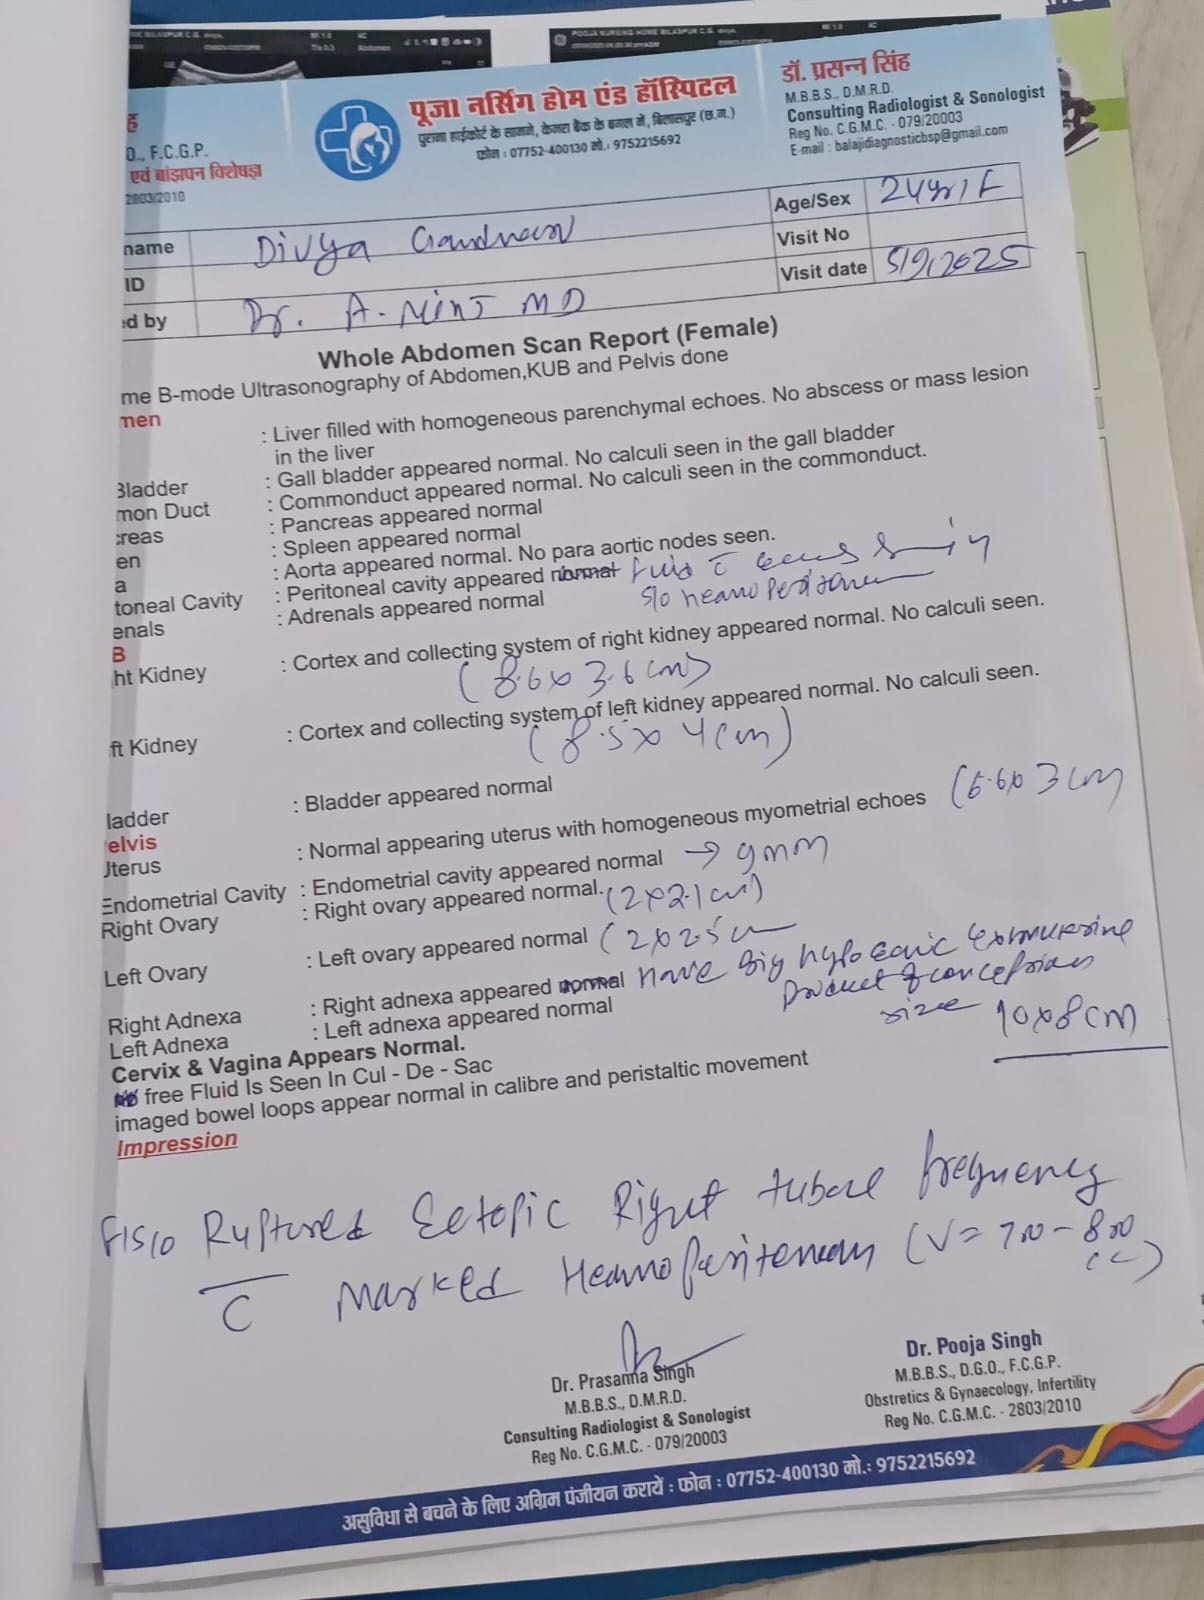 पूजा नर्सिग होम एंड हॉस्पिटल
पुराना हाईकोर्ट के सामने, केनरा बैंक के बगल में, बिलासपुर (छ.ग.)
फोन : 07752-400130 मो.: 9752215692
डॉ. प्रसन्न सिंह
M.B.B.S., D.M.R.D.
Consulting Radiologist & Sonologist
Reg No. C.G.M.C. - 079/20003
E-mail : balajidiagnosticbsp@gmail.com
ह
O., F.C.G.P.
एवं बांझपन विशेषज्ञ
2803/2010
name Divya
Age/Sex 24yr/F
ID
Visit No
Visit date 5/9/2025
ed by Dr. A. MINJ MD
Whole Abdomen Scan Report (Female)
me B-mode Ultrasonography of Abdomen,KUB and Pelvis done
men
: Liver filled with homogeneous parenchymal echoes. No abscess or mass lesion
in the liver
Bladder : Gall bladder appeared normal. No calculi seen in the gall bladder
mon Duct : Commonduct appeared normal. No calculi seen in the commonduct.
creas : Pancreas appeared normal
en : Spleen appeared normal
a : Aorta appeared normal. No para aortic nodes seen.
toneal Cavity : Peritoneal cavity appeared normal fluid c̄
enals : Adrenals appeared normal
s/o
B
ht Kidney : Cortex and collecting system of right kidney appeared normal. No calculi seen.
(8.6x3.6cm)
ft Kidney : Cortex and collecting system of left kidney appeared normal. No calculi seen.
(8.5x4cm)
ladder : Bladder appeared normal
elvis
Uterus : Normal appearing uterus with homogeneous myometrial echoes
Endometrial Cavity : Endometrial cavity appeared normal → 9mm
Right Ovary : Right ovary appeared normal. (2x2.1cm)
Left Ovary : Left ovary appeared normal (2x2.5cm
Right Adnexa : Right adnexa appeared normal Have Big
Product of conception
size 10x8cm
Left Adnexa : Left adnexa appeared normal
Cervix & Vagina Appears Normal.
free Fluid Is Seen In Cul - De - Sac
imaged bowel loops appear normal in calibre and peristaltic movement
Impression
Ruptured Ectopic Right
c̄ Marked (V= 700-800
cc)
Dr. Prasanna Singh
M.B.B.S., D.M.R.D.
Consulting Radiologist & Sonologist
Reg No. C.G.M.C. - 079/20003
Dr. Pooja Singh
M.B.B.S., D.G.O., F.C.G.P.
Obstretics & Gynaecology, Infertility
Reg No. C.G.M.C. - 2803/2010
असुविधा से बचने के लिए अग्रिम पंजीयन करायें : फोन : 07752-400130 मो.: 9752215692